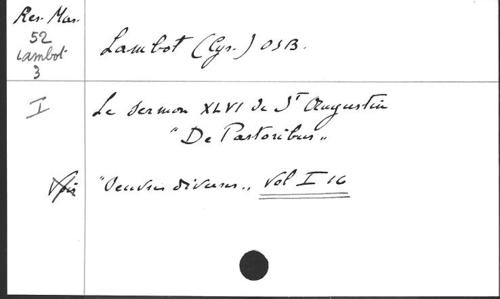 Res. Mas.
52
Lambot
3
Lambot (Cyr.) OSB.
I
Le Sermon XLVI de St Augustin
"De Pastoribus"
Voir "Oeuvres diverses", Vol I 16